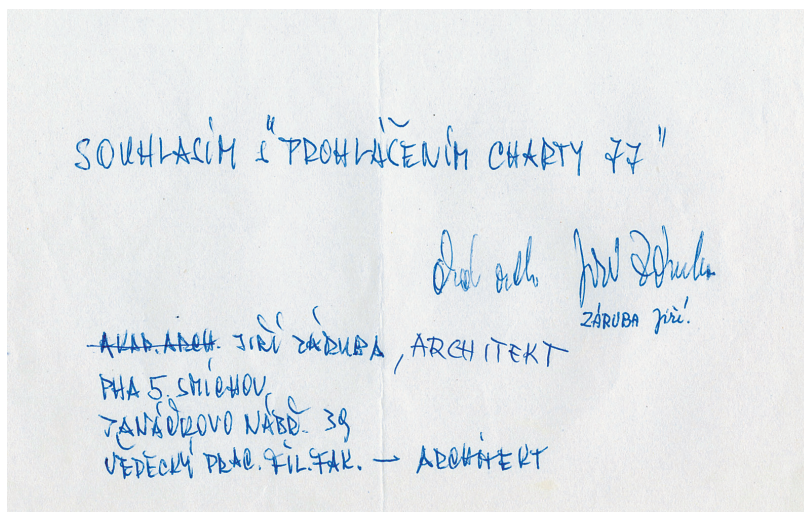 SOUHLASÍM S "PROHLÁČENÍM CHARTY 77"
Akad. arch. Jiří Záruba
ZÁRUBA Jiří.
AKAD. ARCH. JIŘÍ ZÁRUBA, ARCHITEKT
PHA 5. SMÍCHOV,
JANÁČKOVO NÁBŘ. 39
VĚDECKÝ PRAC. FIL. FAK. → ARCHITEKT